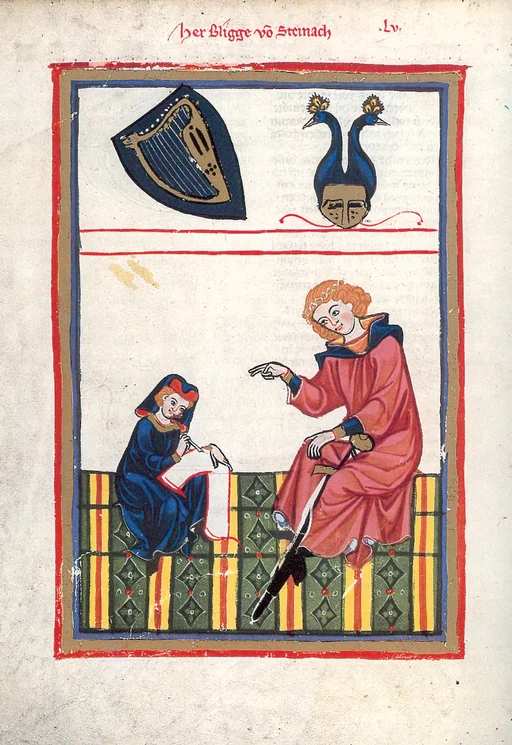 Her Bligge võ Steinach
.Lv.